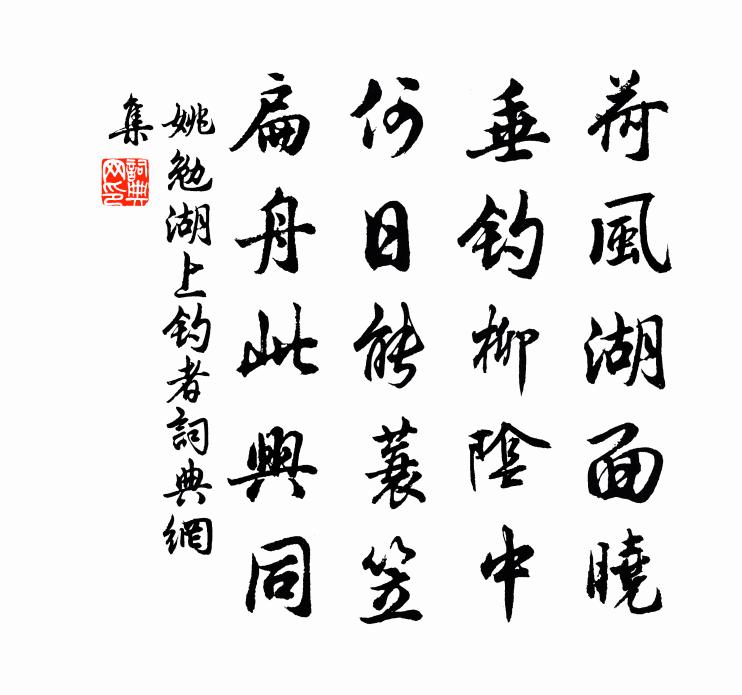 荷風湖面曉
垂釣柳陰中
何日能蓑笠
扁舟此興同
姚勉湖上釣者詞典網
集
詞典網印